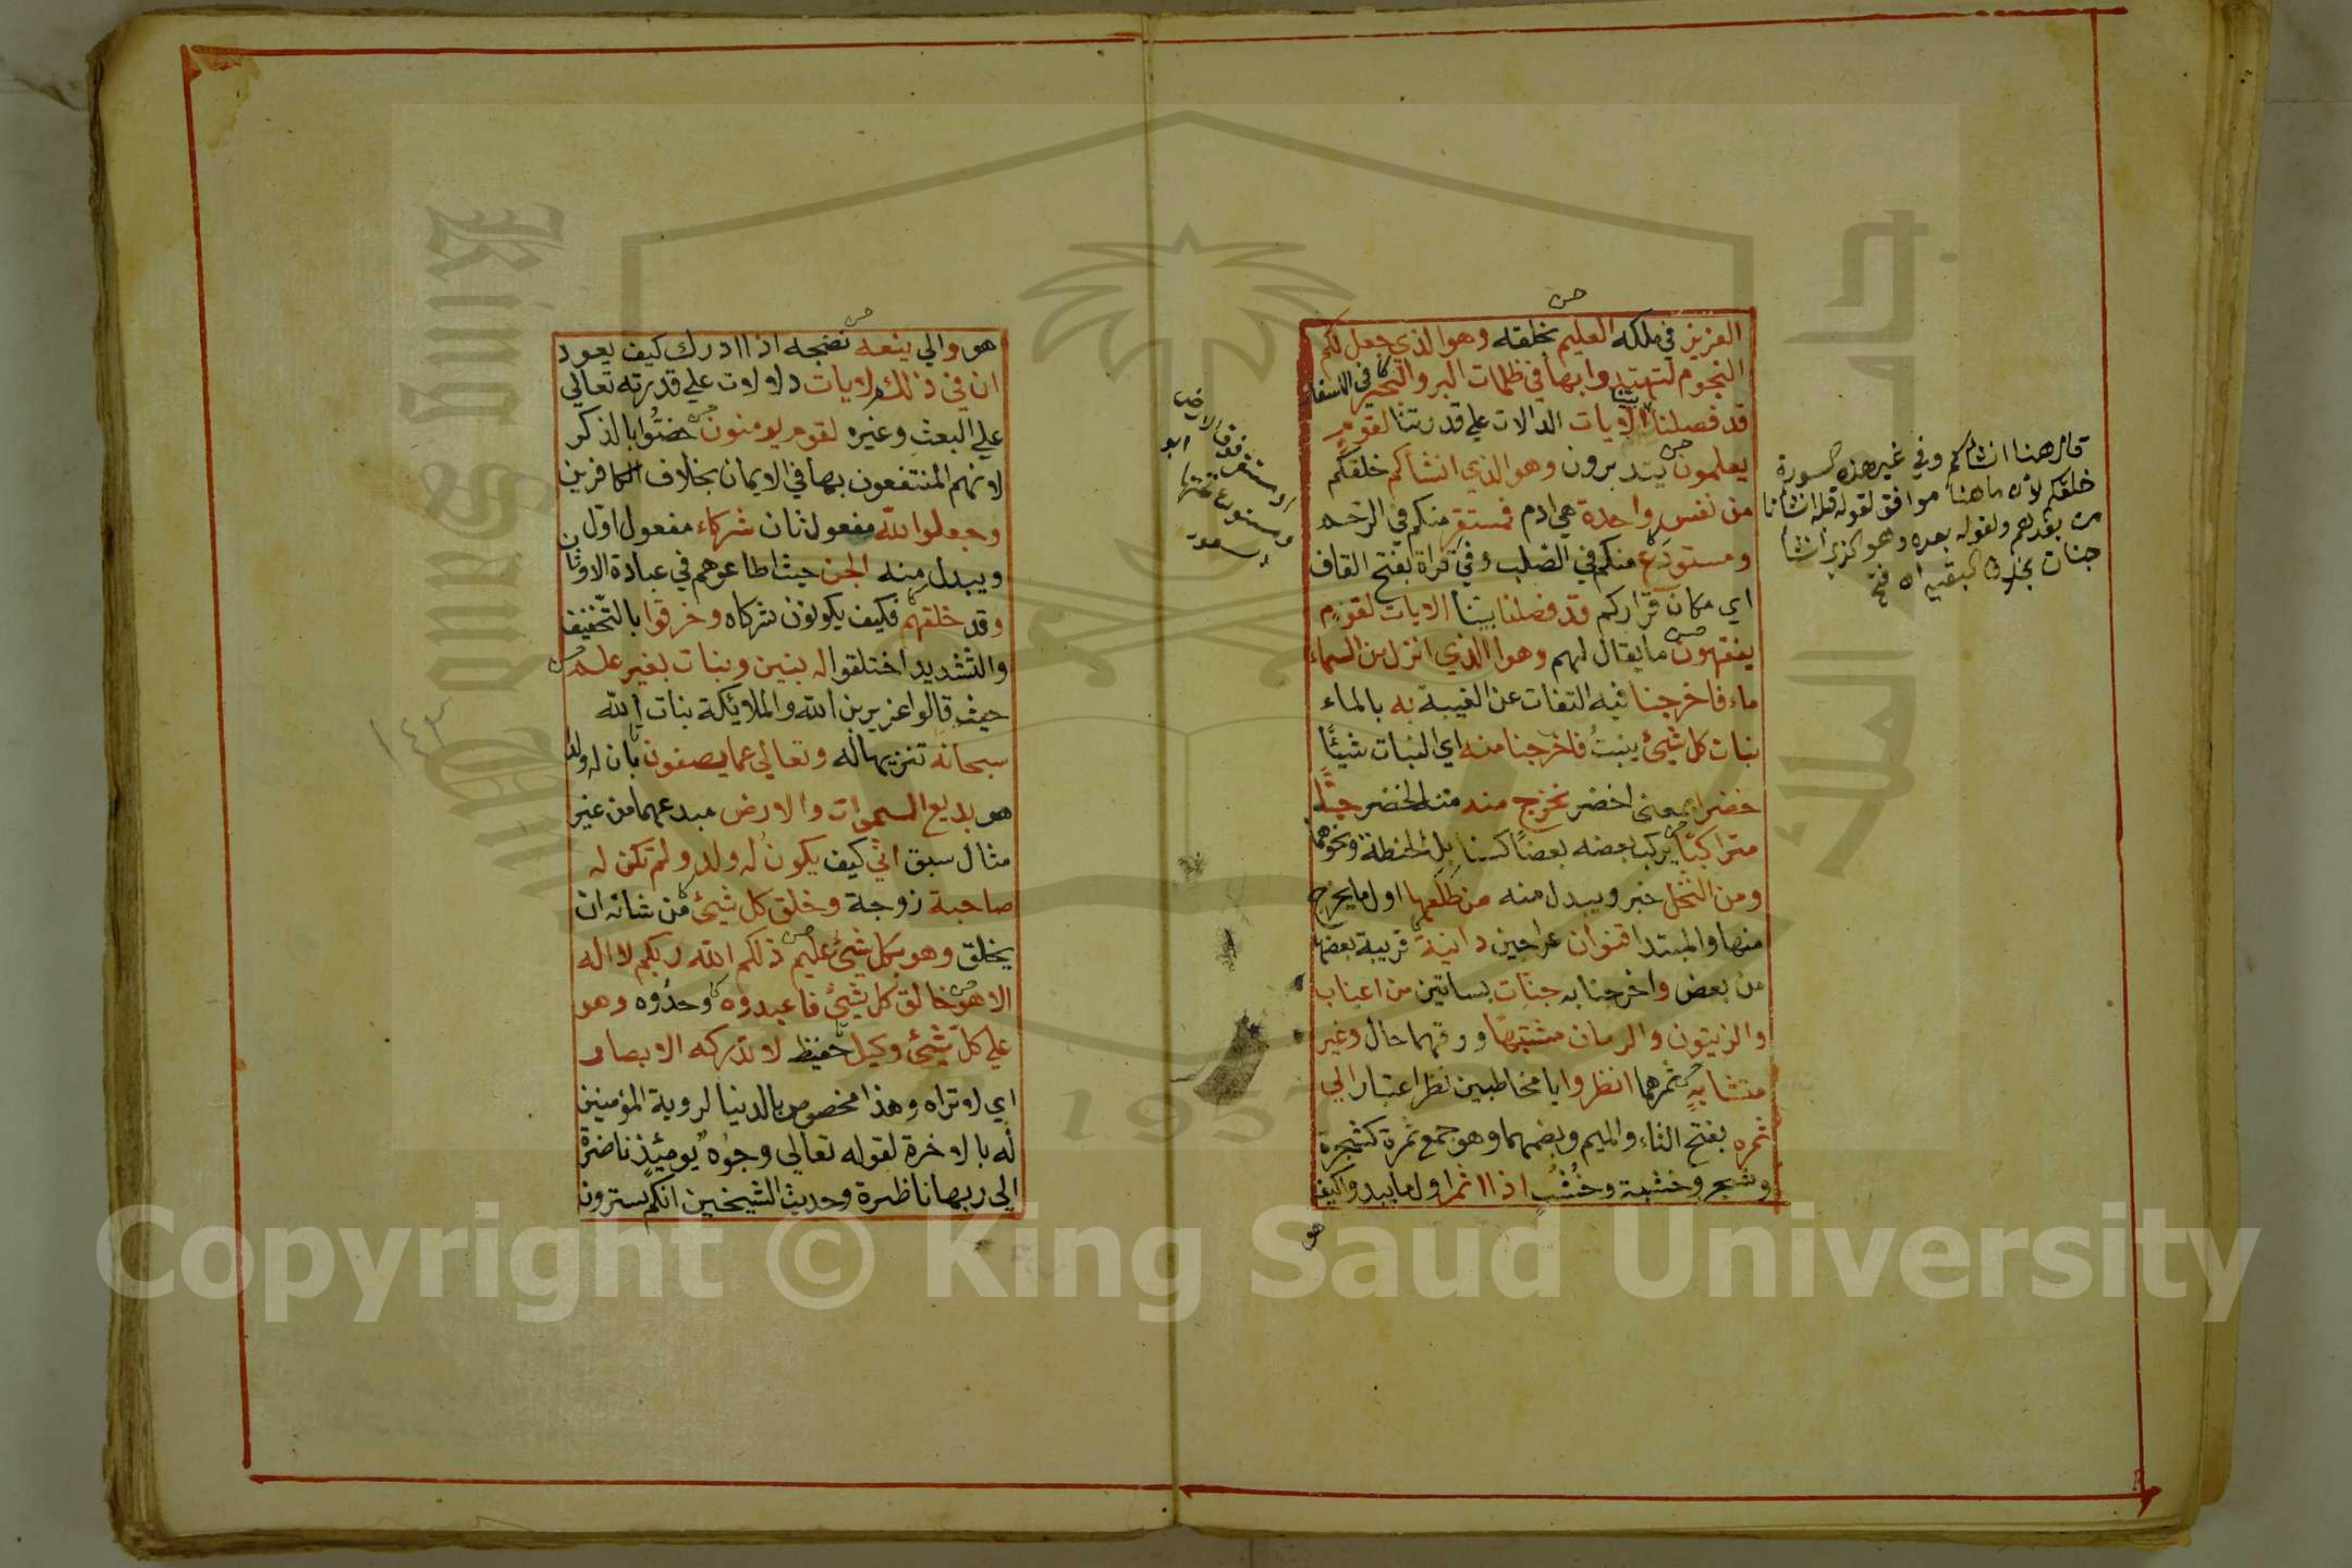 العزيز في ملكه العليم بخلقه وهو الذي جعل لكم
النجوم لتهتدوا بها في ظلمات البر والبحر في الاسفار
قد فصلنا بينا الايات الدالات علي قدرتنا لقوم
يعلمون يتدبرون وهو الذي انشأكم خلقكم
من نفس واحدة هي ادم فمستقر منكم في الرحم
ومستودع منكم في الصلب وفي قراة بفتح القاف
اي مكان قراركم قد فصلنا بينا الايات لقوم
يفقهون ما يقال لهم وهو الذي انزل من السماء
ماء فاخرجنا فيه التفات عن الغيبة به بالماء
نبات كل شيئ ينبت فاخرجنا منه اي النبات شيئًا
خضرا بمعني اخضر نخرج منه من الخضر حبًّا
متراكبًا يركب بعضه بعضًا كسنابل الحنطة ونحوها
ومن النخل خبر ويبدل منه من طلعها اول ما يخرج
منها والمبتدا قنوان عراجين دانية قريبة بعضها
من بعض واخرجنا به جنات بساتين من اعناب
والزيتون والرمان مشتبهًا ورقهما حال وغير
متشابهٍ ثمرهما انظروا يا مخاطبين نظر اعتبار الي
ثمره بفتح الثاء والميم وبضمهما وهو جمع ثمرة كشجرة
وشجر وخشبة وخُشُبٍ اذا اثمر اول ما يبدو اكيف
هو
قال هنا انشاكم وفي غير هذه السورة
خلقكم لان ما هنا موافق لقوله قبله انشانا
من بعدهم ولقوله بعده وهو الذي انشا
جنات بخلاف البقية اه فتح
ومستودع تحتها
هو والي ينعه نضجه اذا ادرك كيف يعود
ان في ذلكم لايات دلالات علي قدرته تعالي
علي البعث وغيره لقوم يومنون خصُّوا بالذكر
لانهم المنتفعون بها في الايمان بخلاف الكافرين
وجعلوا لله مفعول ثان شركاء مفعول اول
ويبدل منه الجن حيث اطاعوهم في عبادة الاوثان
وقد خلقهم فكيف يكونون شركاه وخرقوا بالتخفيف
والتشديد اختلقوا له بنين وبنات بغير علم
حيث قالوا عزير بن الله والملائكة بنات الله
سبحانه تنزيها له وتعالي عما يصفون بان له ولد
هو بديع السموات والارض مبدعهما من غير
مثال سبق انّي كيف يكون له ولد ولم تكن له
صاحبة زوجة وخلق كل شيئ من شانه ان
يخلق وهو بكل شيئ عليم ذلكم الله ربكم لا اله
الا هو خالق كل شيئ فاعبدوه وحدوه وهو
علي كل شيئ وكيل حفيظ لا تدركه الابصار
اي لا تراه وهذا مخصوص بالدنيا لروية المؤمنين
له بالاخرة لقوله تعالي وجوه يومئذ ناضرة
الي ربها ناظرة وحديث الشيخين انكم سترون
Copyright © King Saud University
1957